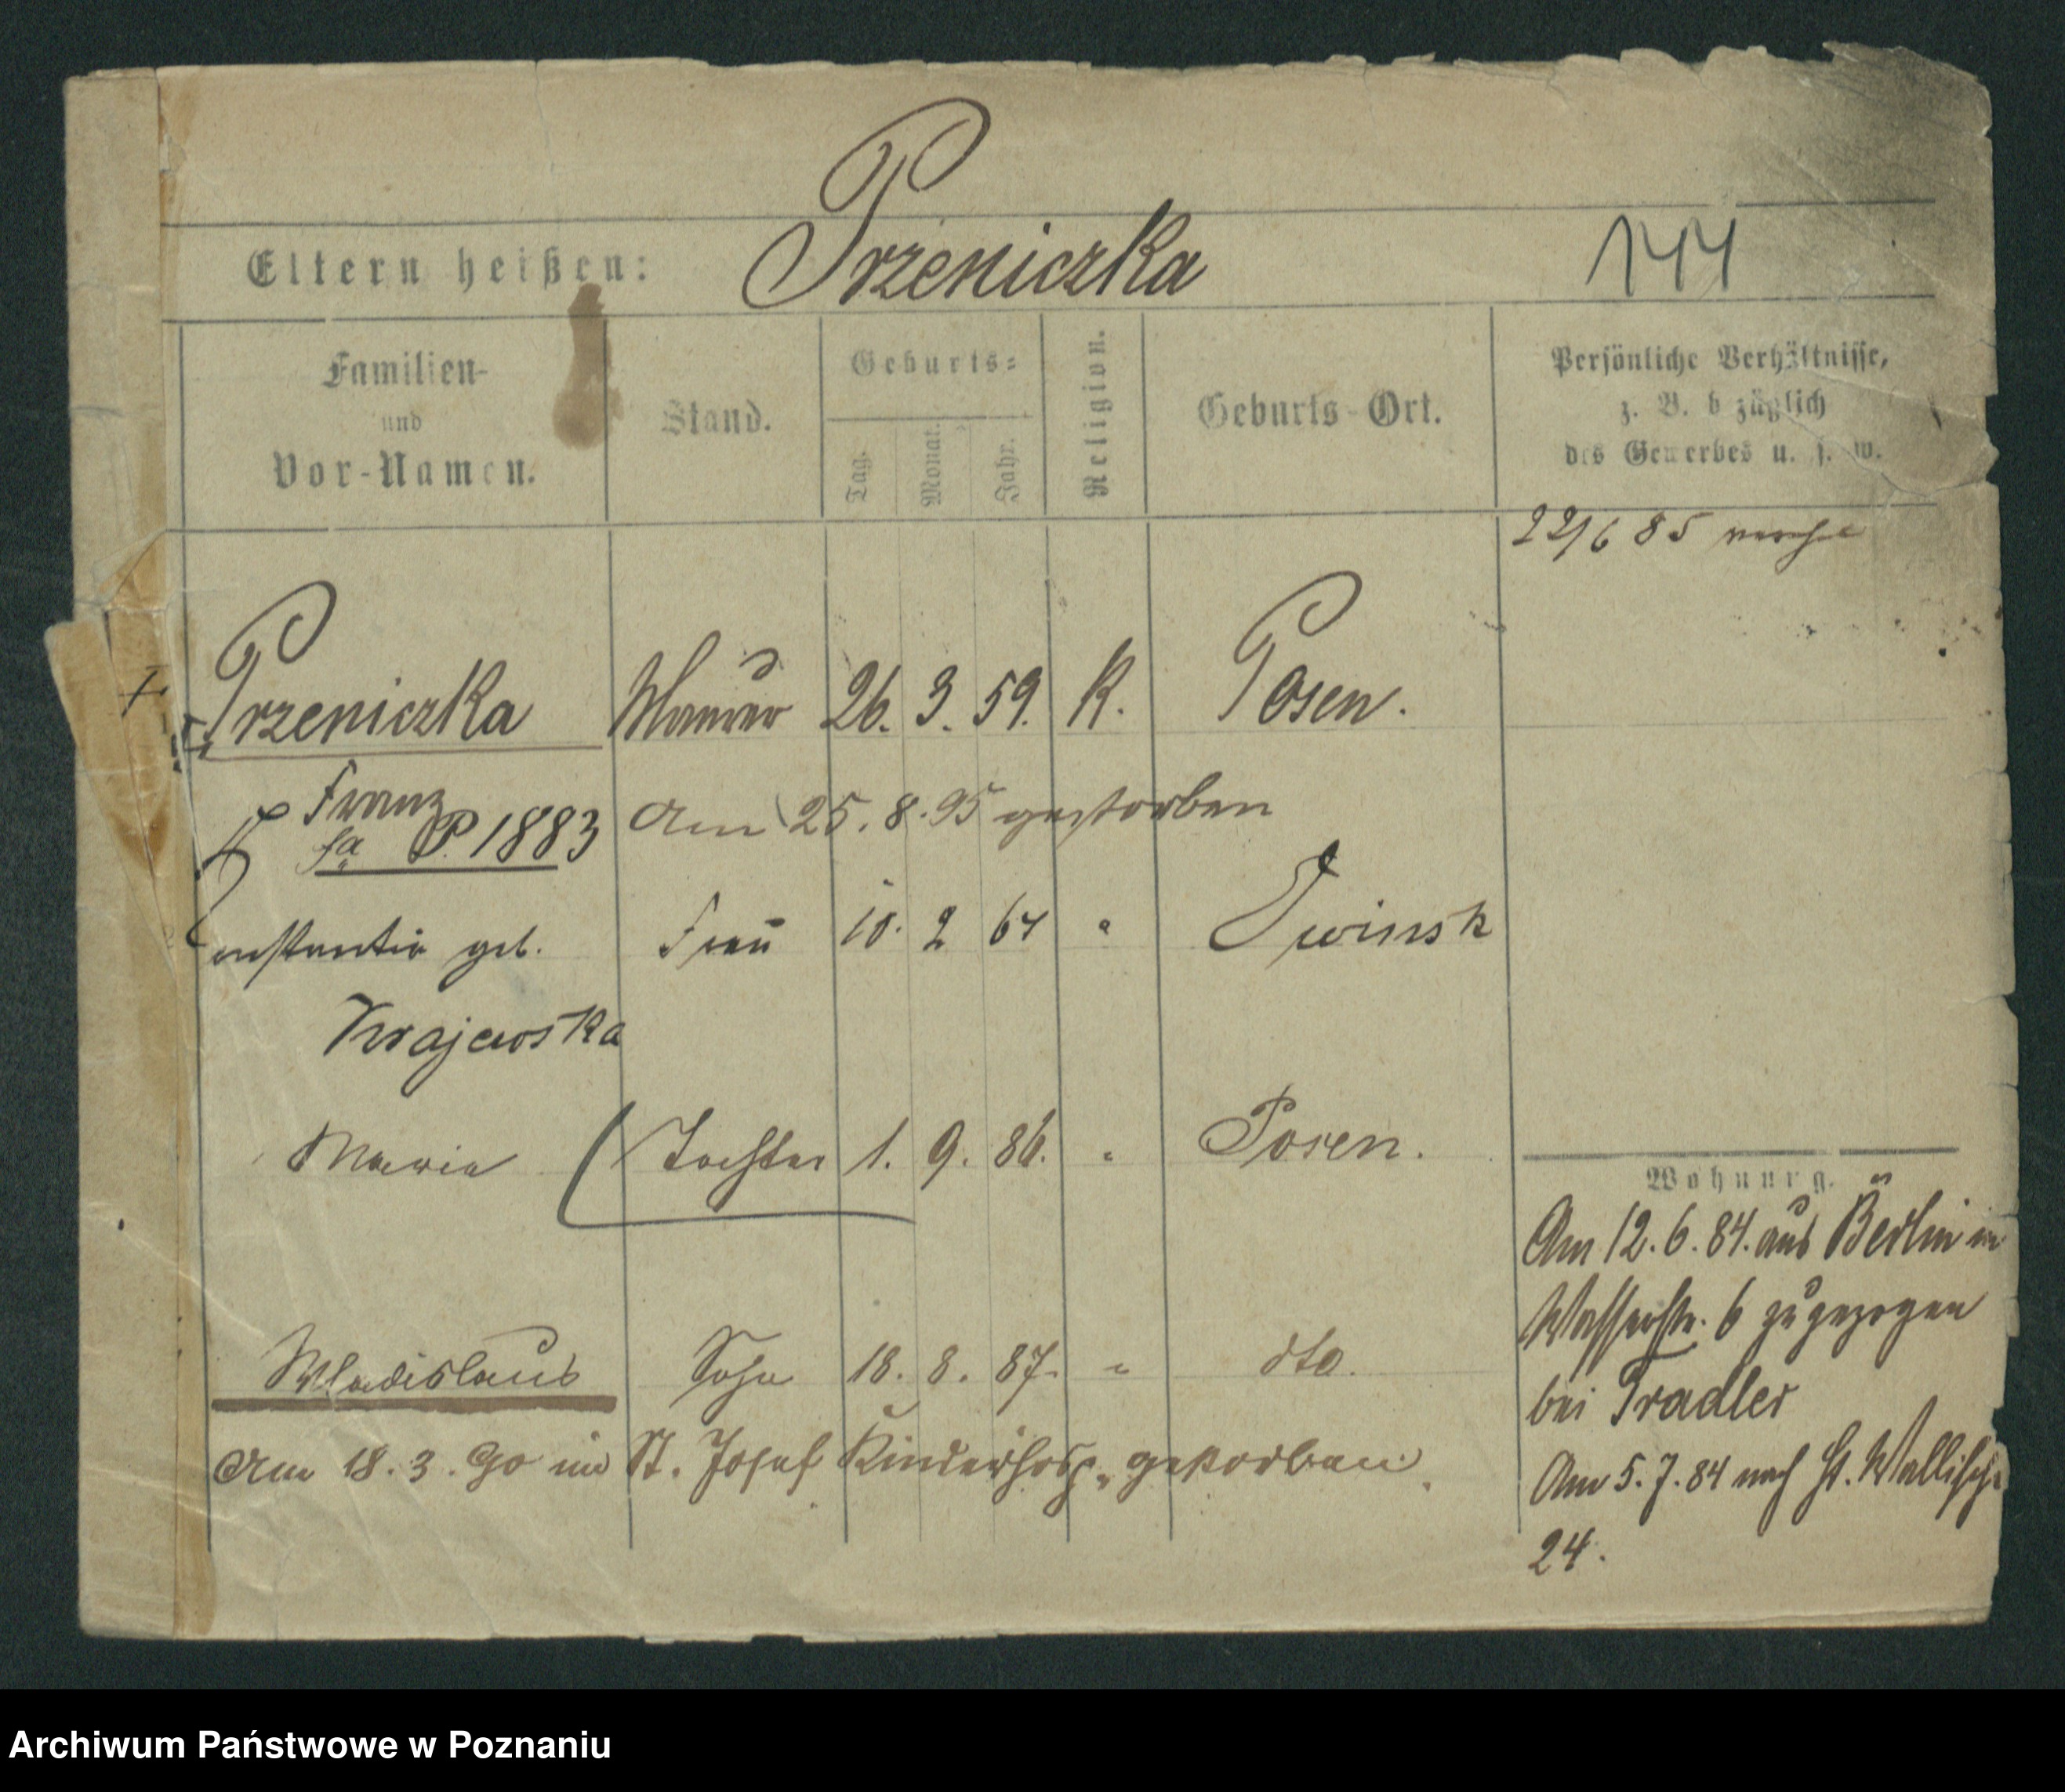 Przeniczka
Eltern heißen:
144
Familien-
und
Vor-Namen.
Stand.
Geburts=
Tag.
Monat.
Jahr.
Religion.
Geburts-Ort.
Persönliche Verhältnisse,
z. B. bezüglich
des Gewerbes u. s. w.
22/6 85
Przeniczka Maurer 26. 3. 59. K. Posen.
Franz
P. 1883 am 25. 8. 95 gestorben
Constantia geb. Frau 10. 2 64 " Owinsk
Krajewska
Maria Tochter 1. 9. 86. " Posen.
Wohnung.
Am 12. 6. 84. aus Berlin in
Wasserstr. 6 zugezogen
bei Pradler
Am 5. 7. 84 nach St. Wallische
24.
Wladislaus Sohn 18. 8. 87. " dto.
Am 18. 3. 90 im St. Josef Kinderhosp. gestorben.
Archiwum Państwowe w Poznaniu